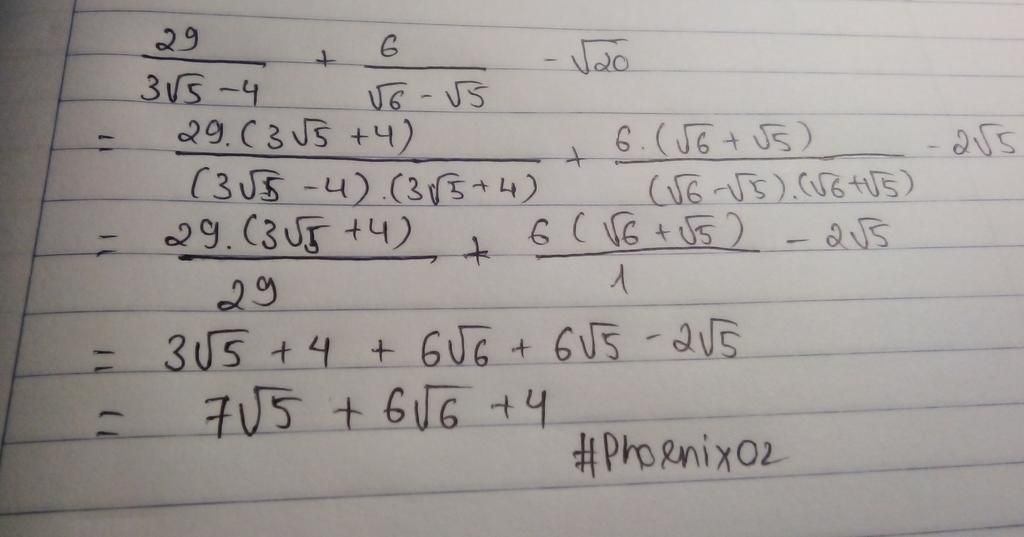 29/(3√5 - 4) + 6/(√6 - √5) - √20
= 29.(3√5 + 4)/((3√5 - 4).(3√5 + 4)) + 6.(√6 + √5)/((√6 - √5).(√6 + √5)) - 2√5
= 29.(3√5 + 4)/29 + 6(√6 + √5)/1 - 2√5
= 3√5 + 4 + 6√6 + 6√5 - 2√5
= 7√5 + 6√6 + 4
#Phoenix02